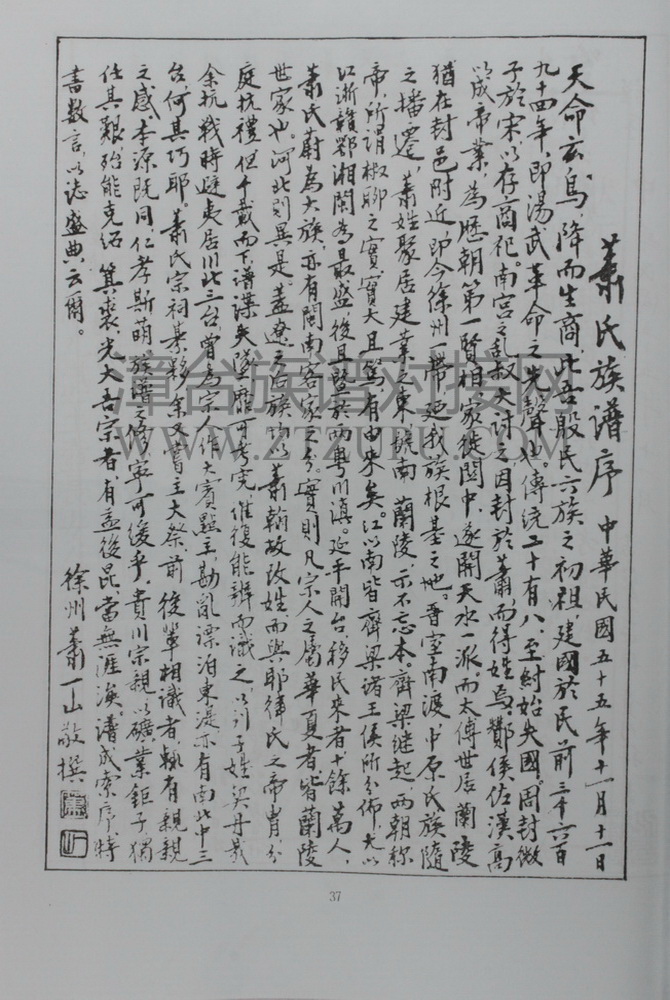 蕭氏族譜序 中華民國五十五年十一月十一日
天命玄鳥,降而生商,此吾殷民六族之初祖,建國於民前三千六百
九十四年,即湯武革命之先聲也。傳統二十有八,至紂始失國,周封微
子於宋,以存商祀。南宮之乱,叔大附之,因封於蕭,而得姓焉。酇侯佐漢高
以成帝業,為歷朝第一賢相,家徙關中,遂開天水一派。而太傅世居蘭陵
猶在封邑附近,即今徐州一帶,廼我族根基之地。晋室南渡,中原氏族隨
之播遷,蕭姓聚居建業之東,號南蘭陵,示不忘本。齊梁继起,兩朝称
帝,所謂椒聊之實,實大且篤,有由来矣。江以南皆齊梁諸王侯所分佈,尤以
江浙贛鄂湘閩為最盛,後且暨於兩粤川滇。延平開台,移民來者十餘萬人,
蕭氏蔚為大族,亦有閩南客家之分。實則凡宗人之屬華夏者,皆蘭陵
世家也。河北則異是。蓋遼之后族,均以蕭翰故改姓,而與耶律氏之帝胄,分
庭抗禮,但千載而下,譜諜失墜,靡可考究,谁復能辨而識之,以别子姓契丹哉
余抗戰時避夷居川北三台,曾為宗人作大賓點主,勘亂漂泊東港,亦有南北中三
台,何其巧耶。蕭氏宗祠綦夥,余又嘗主大祭,前後輩相識者,輒有親親
之感,本源既同,仁孝斯萌,族譜之修,寧可缓乎,貴川宗親,以礦業鉅子,獨
任其艱,殆能克紹箕裘,光大吾宗者,有益後昆,當無涯涘。譜成索序,特
書數言,以志盛典云爾。
徐州蕭一山敬撰
漳台族谱对接网
WWW.ZTZUPU.COM
37